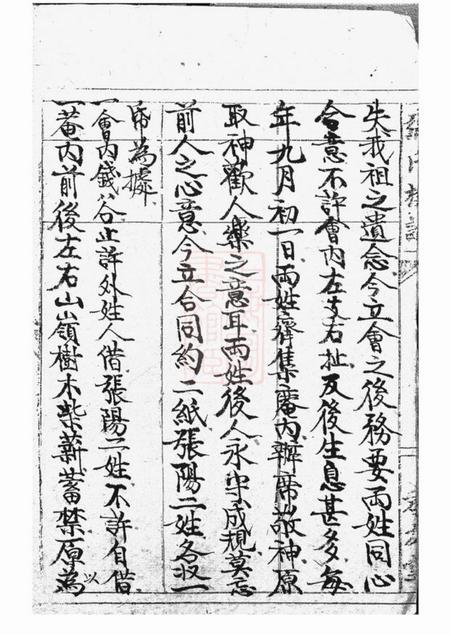 失我祖之遺念今立會之後務要兩姓同心
合意不許會內左支右扯及後生息甚多每
年九月初一日兩姓齊集庵內辦席敬神原
取神歡人樂之意耳兩姓後人永守成規莫忘
前人之心意今立合同約二紙張陽二姓各收一
昏為據
一會內錢谷止許外姓人借張陽二姓不許自借
一菴內前後左右山嶺樹木柴薪蓄禁原為以